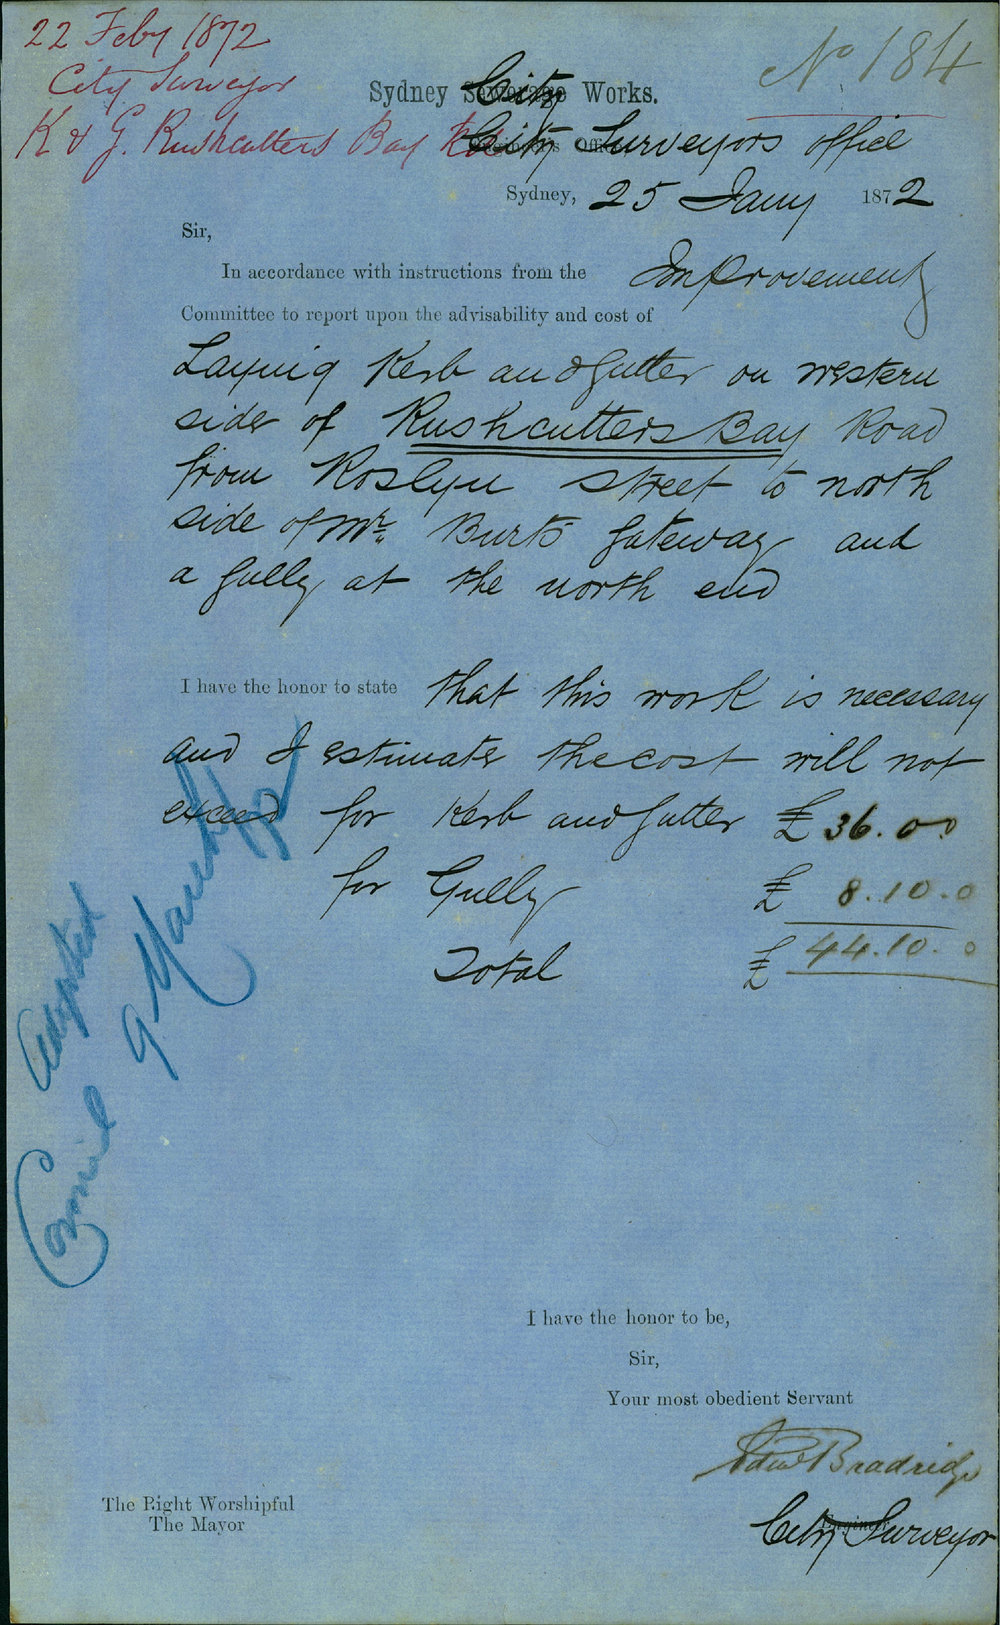 22 Feby 1872
City Surveyor
K & G. Rushcutters Bay Rd
No 184
Sydney Sewerage City Works.
Engineer's Office City Surveyors office
Sydney, 25 Jany 1872
Sir,
In accordance with instructions from the Improvement
Committee to report upon the advisability and cost of
Laying Kerb and Gutter on western
side of Rushcutters Bay Road
from Roslyn Street to north
side of Mr. Burts gateway and
a gully at the north end
I have the honor to state that this work is necessary
and I estimate the cost will not
exceed for Kerb and Gutter £ 36.00
for Gully £ 8.10.0
Total £ 44.10.0
Adopted
Council 9 March /72
I have the honor to be,
Sir,
Your most obedient Servant
Edwd Bradridge
Engineer City Surveyor
The Right Worshipful
The Mayor